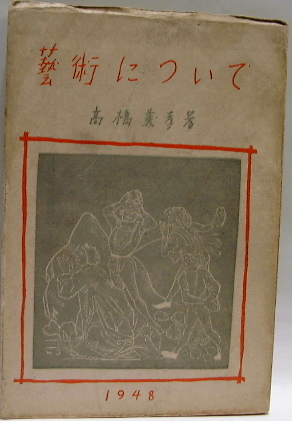 藝術について
高橋義孝著
1948